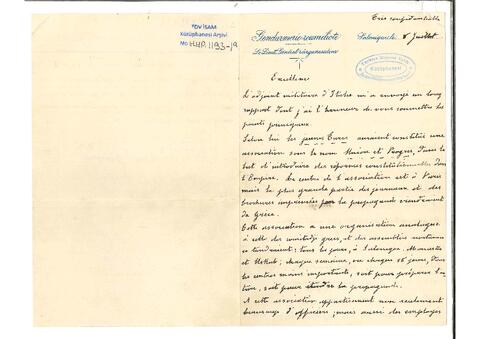 Très confidentielle
TDV İSAM
Kütüphanesi Arşivi
No HHP. 1193-19
Gendarmerie roumeliote
Salonique le 8 Juillet
Le Lieut. Général réorganisateur
Kütüphanesi
Excellence
L'adjoint militaire d'Italie m'a envoyé un long
rapport dont j'ai l'honneur de vous soumettre les
points principaux.
Selon lui les jeunes Turcs auraient constitué une
association sous le nom Union et Progrès, dans le
but d'introduire des réformes constitutionnelles dans
l'Empire. Le centre de l'association est à Paris
mais la plus grande partie des journaux et des
brochures imprimées par la propagande viendraient
de Grèce.
Cette association a une organisation analogue
à celle des comitadjis grecs, et des assemblées
se tiendraient: tous les jours, à Salonique, Monastir
et Uskub; chaque semaine, ou chaque 15 jours, dans
les centres moins importants, soit pour préparer l'ac-
tion, soit pour étendre la propagande.
A cette association appartiennent non seulement
beaucoup d'officiers, mais aussi des employés